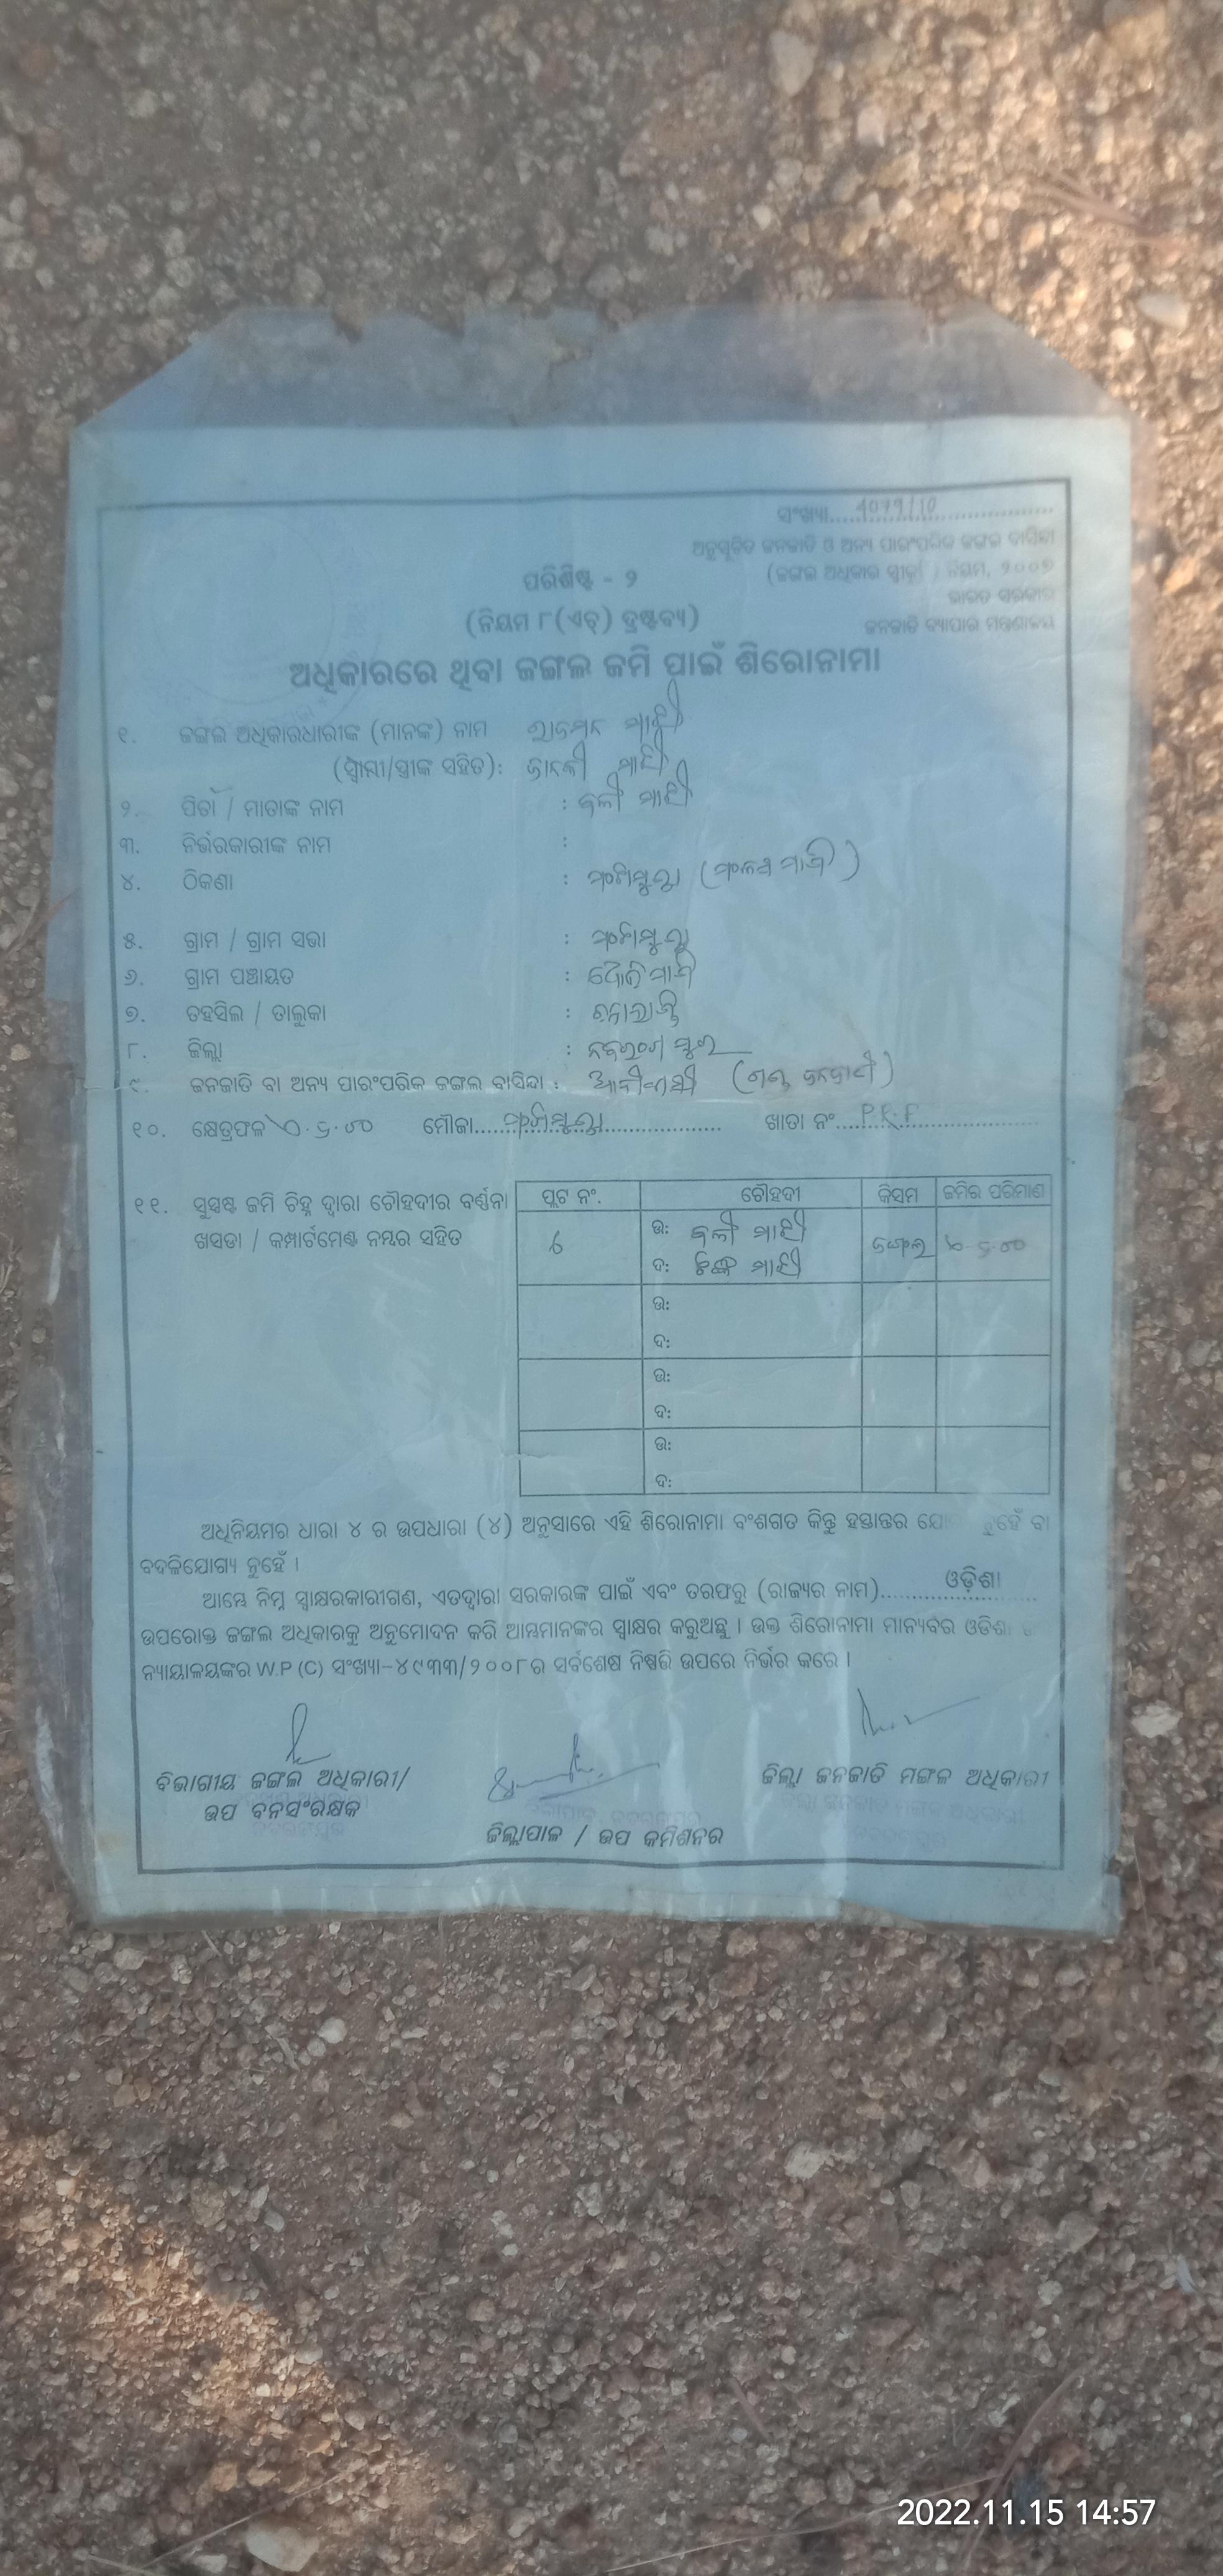 ସଂଖ୍ୟା.....1079/10..................
ଅନୁସୂଚିତ ଜନଜାତି ଓ ଅନ୍ୟ ପାରଂପରିକ ଜଙ୍ଗଲ ବାସିନ୍ଦା
ପରିଶିଷ୍ଟ - ୨
(ଜଙ୍ଗଲ ଅଧିକାର ସ୍ୱୀକୃତି) ନିୟମ, ୨୦୦୭
ଭାରତ ସରକାର
(ନିୟମ ୮(ଏଚ୍) ଦ୍ରଷ୍ଟବ୍ୟ)
ଜନଜାତି ବ୍ୟାପାର ମନ୍ତ୍ରଣାଳୟ
ଅଧିକାରରେ ଥିବା ଜଙ୍ଗଲ ଜମି ପାଇଁ ଶିରୋନାମା
୧. ଜଙ୍ଗଲ ଅଧିକାରଧାରୀଙ୍କ (ମାନଙ୍କ) ନାମ ମାଝୀ
(ସ୍ୱାମୀ/ସ୍ତ୍ରୀଙ୍କ ସହିତ): ମାଝୀ
୨. ପିତା / ମାତାଙ୍କ ନାମ : ବଳୀ ମାଝୀ
୩. ନିର୍ଭରକାରୀଙ୍କ ନାମ :
୪. ଠିକଣା :
୫. ଗ୍ରାମ / ଗ୍ରାମ ସଭା :
୬. ଗ୍ରାମ ପଞ୍ଚାୟତ :
୭. ତହସିଲ / ତାଲୁକା :
୮. ଜିଲ୍ଲା : ନବରଂଗପୁର
୯. ଜନଜାତି ବା ଅନ୍ୟ ପାରଂପରିକ ଜଙ୍ଗଲ ବାସିନ୍ଦା : ଆଦିବାସୀ
୧୦. କ୍ଷେତ୍ରଫଳ ମୌଜା.................................... ଖାତା ନଂ....P.R.F..................
୧୧. ସୁସ୍ପଷ୍ଟ ଜମି ଚିହ୍ନ ଦ୍ୱାରା ଚୌହଦୀର ବର୍ଣ୍ଣନା
ଖସଡା / କମ୍ପାର୍ଟମେଣ୍ଟ ନମ୍ବର ସହିତ
ପ୍ଲଟ ନଂ. ଚୌହଦୀ କିସମ ଜମିର ପରିମାଣ
6 ଉ: ବଳୀ ମାଝୀ ଜଙ୍ଗଲ
ଦ: ମାଝୀ
ଉ:
ଦ:
ଉ:
ଦ:
ଉ:
ଦ:
ଅଧିନିୟମର ଧାରା ୪ ର ଉପଧାରା (୪) ଅନୁସାରେ ଏହି ଶିରୋନାମା ବଂଶଗତ କିନ୍ତୁ ହସ୍ତାନ୍ତର ନୁହେଁ ବା
ବଦଳିଯୋଗ୍ୟ ନୁହେଁ ।
ଆମ୍ଭେ ନିମ୍ନ ସ୍ୱାକ୍ଷରକାରୀଗଣ, ଏତଦ୍ୱାରା ସରକାରଙ୍କ ପାଇଁ ଏବଂ ତରଫରୁ (ରାଜ୍ୟର ନାମ)..........ଓଡ଼ିଶା..........
ଉପରୋକ୍ତ ଜଙ୍ଗଲ ଅଧିକାରକୁ ଅନୁମୋଦନ କରି ଆମ୍ଭମାନଙ୍କର ସ୍ୱାକ୍ଷର କରୁଅଛୁ । ଉକ୍ତ ଶିରୋନାମା ମାନ୍ୟବର ଓଡିଶା
ନ୍ୟାୟାଳୟଙ୍କର W.P (C) ସଂଖ୍ୟା-୪୯୩୩/୨୦୦୮ର ସର୍ବଶେଷ ନିଷ୍ପତ୍ତି ଉପରେ ନିର୍ଭର କରେ ।
ବିଭାଗୀୟ ଜଙ୍ଗଲ ଅଧିକାରୀ/
ଉପ ବନସଂରକ୍ଷକ
ଜିଲ୍ଲାପାଳ / ଉପ କମିଶନର
ଜିଲ୍ଲା ଜନଜାତି ମଙ୍ଗଳ ଅଧିକାରୀ
2022.11.15 14:57